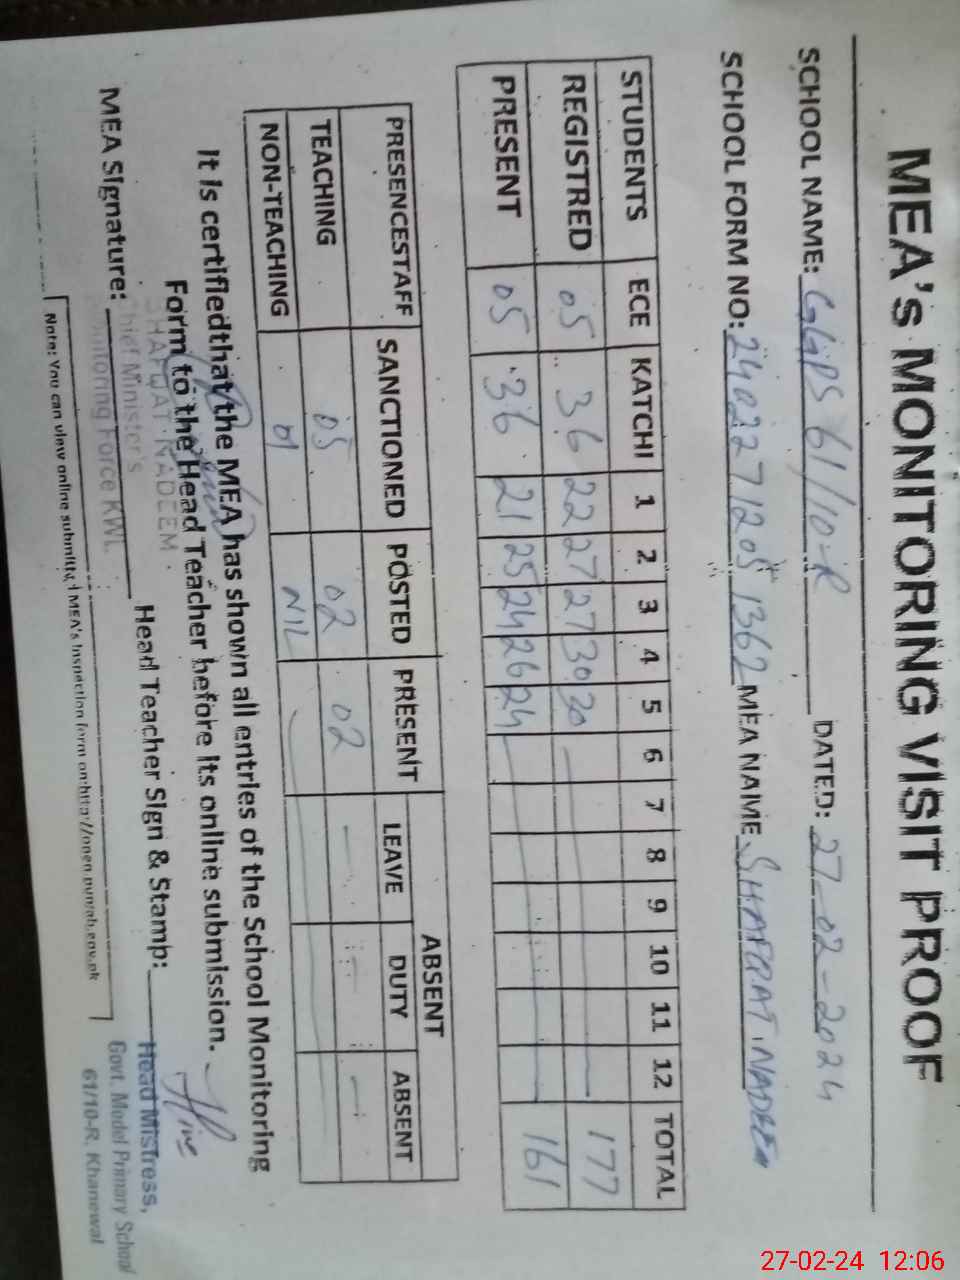 MEA's MONITORING VISIT PROOF
SCHOOL NAME: GGPS 61/10-R DATED: 27-02-2024
SCHOOL FORM NO: 24022712051362 MEA NAME SHAFQAT NADEEM
STUDENTS ECE KATCHI 1 2 3 4 5 6 7 8 9 10 11 12 TOTAL
REGISTRED 05 36 22 27 27 30 30 177
PRESENT 05 36 21 25 24 26 24 161
PRESENCESTAFF SANCTIONED POSTED PRESENT ABSENT
LEAVE DUTY ABSENT
TEACHING 05 02 02
NON-TEACHING 01 NIL
It is certifiedthat the MEA has shown all entries of the School Monitoring
Form to the Head Teacher before its online submission.
SHAFQAT NADEEM
MEA Signature: Head Teacher Sign & Stamp:
Chief Minister's
Monitoring Force KWL
Head Mistress,
Govt. Model Primary School
61/10-R, Khanewal
Note: You can view online submitted MEA's Inspection form on:http://open.punjab.gov.pk
27-02-24 12:06